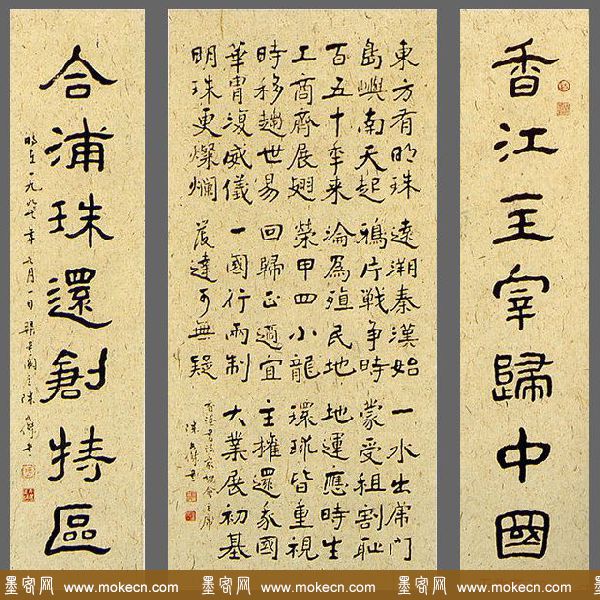 香江主宰歸中國
東方有明珠 遠溯秦漢始 一水出虎門
島嶼南天起 鴉片戰爭時 蒙受租割恥
百五十年来 淪為殖民地 地運應時生
工商齊展翅 榮甲四小龍 環球皆重視
時移趨世易 回歸正適宜 主權還家國
華胄復威儀 一國行兩制 大業展初基
明珠更燦爛 發達可無疑
香港書法家協會主席
陳文傑書
合浦珠還創特區
時在一九九七年七月一日
墨客网 www.mokecn.com 墨客网 www.mokecn.com 墨客网 www.mokecn.com